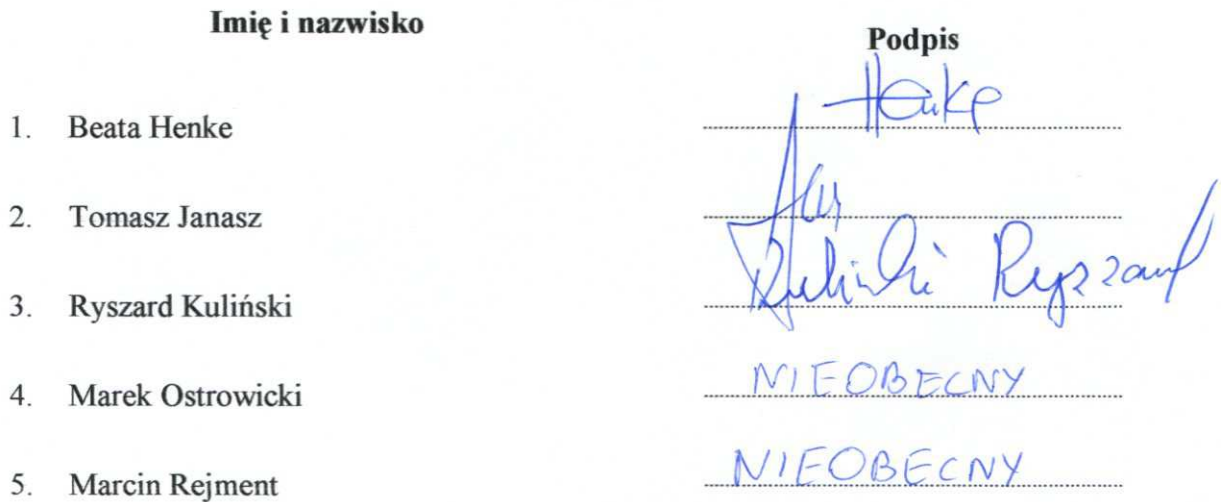 Imię i nazwisko Podpis
1. Beata Henke Henke
2. Tomasz Janasz
3. Ryszard Kuliński Kuliński Ryszard
4. Marek Ostrowicki NIEOBECNY
5. Marcin Rejment NIEOBECNY